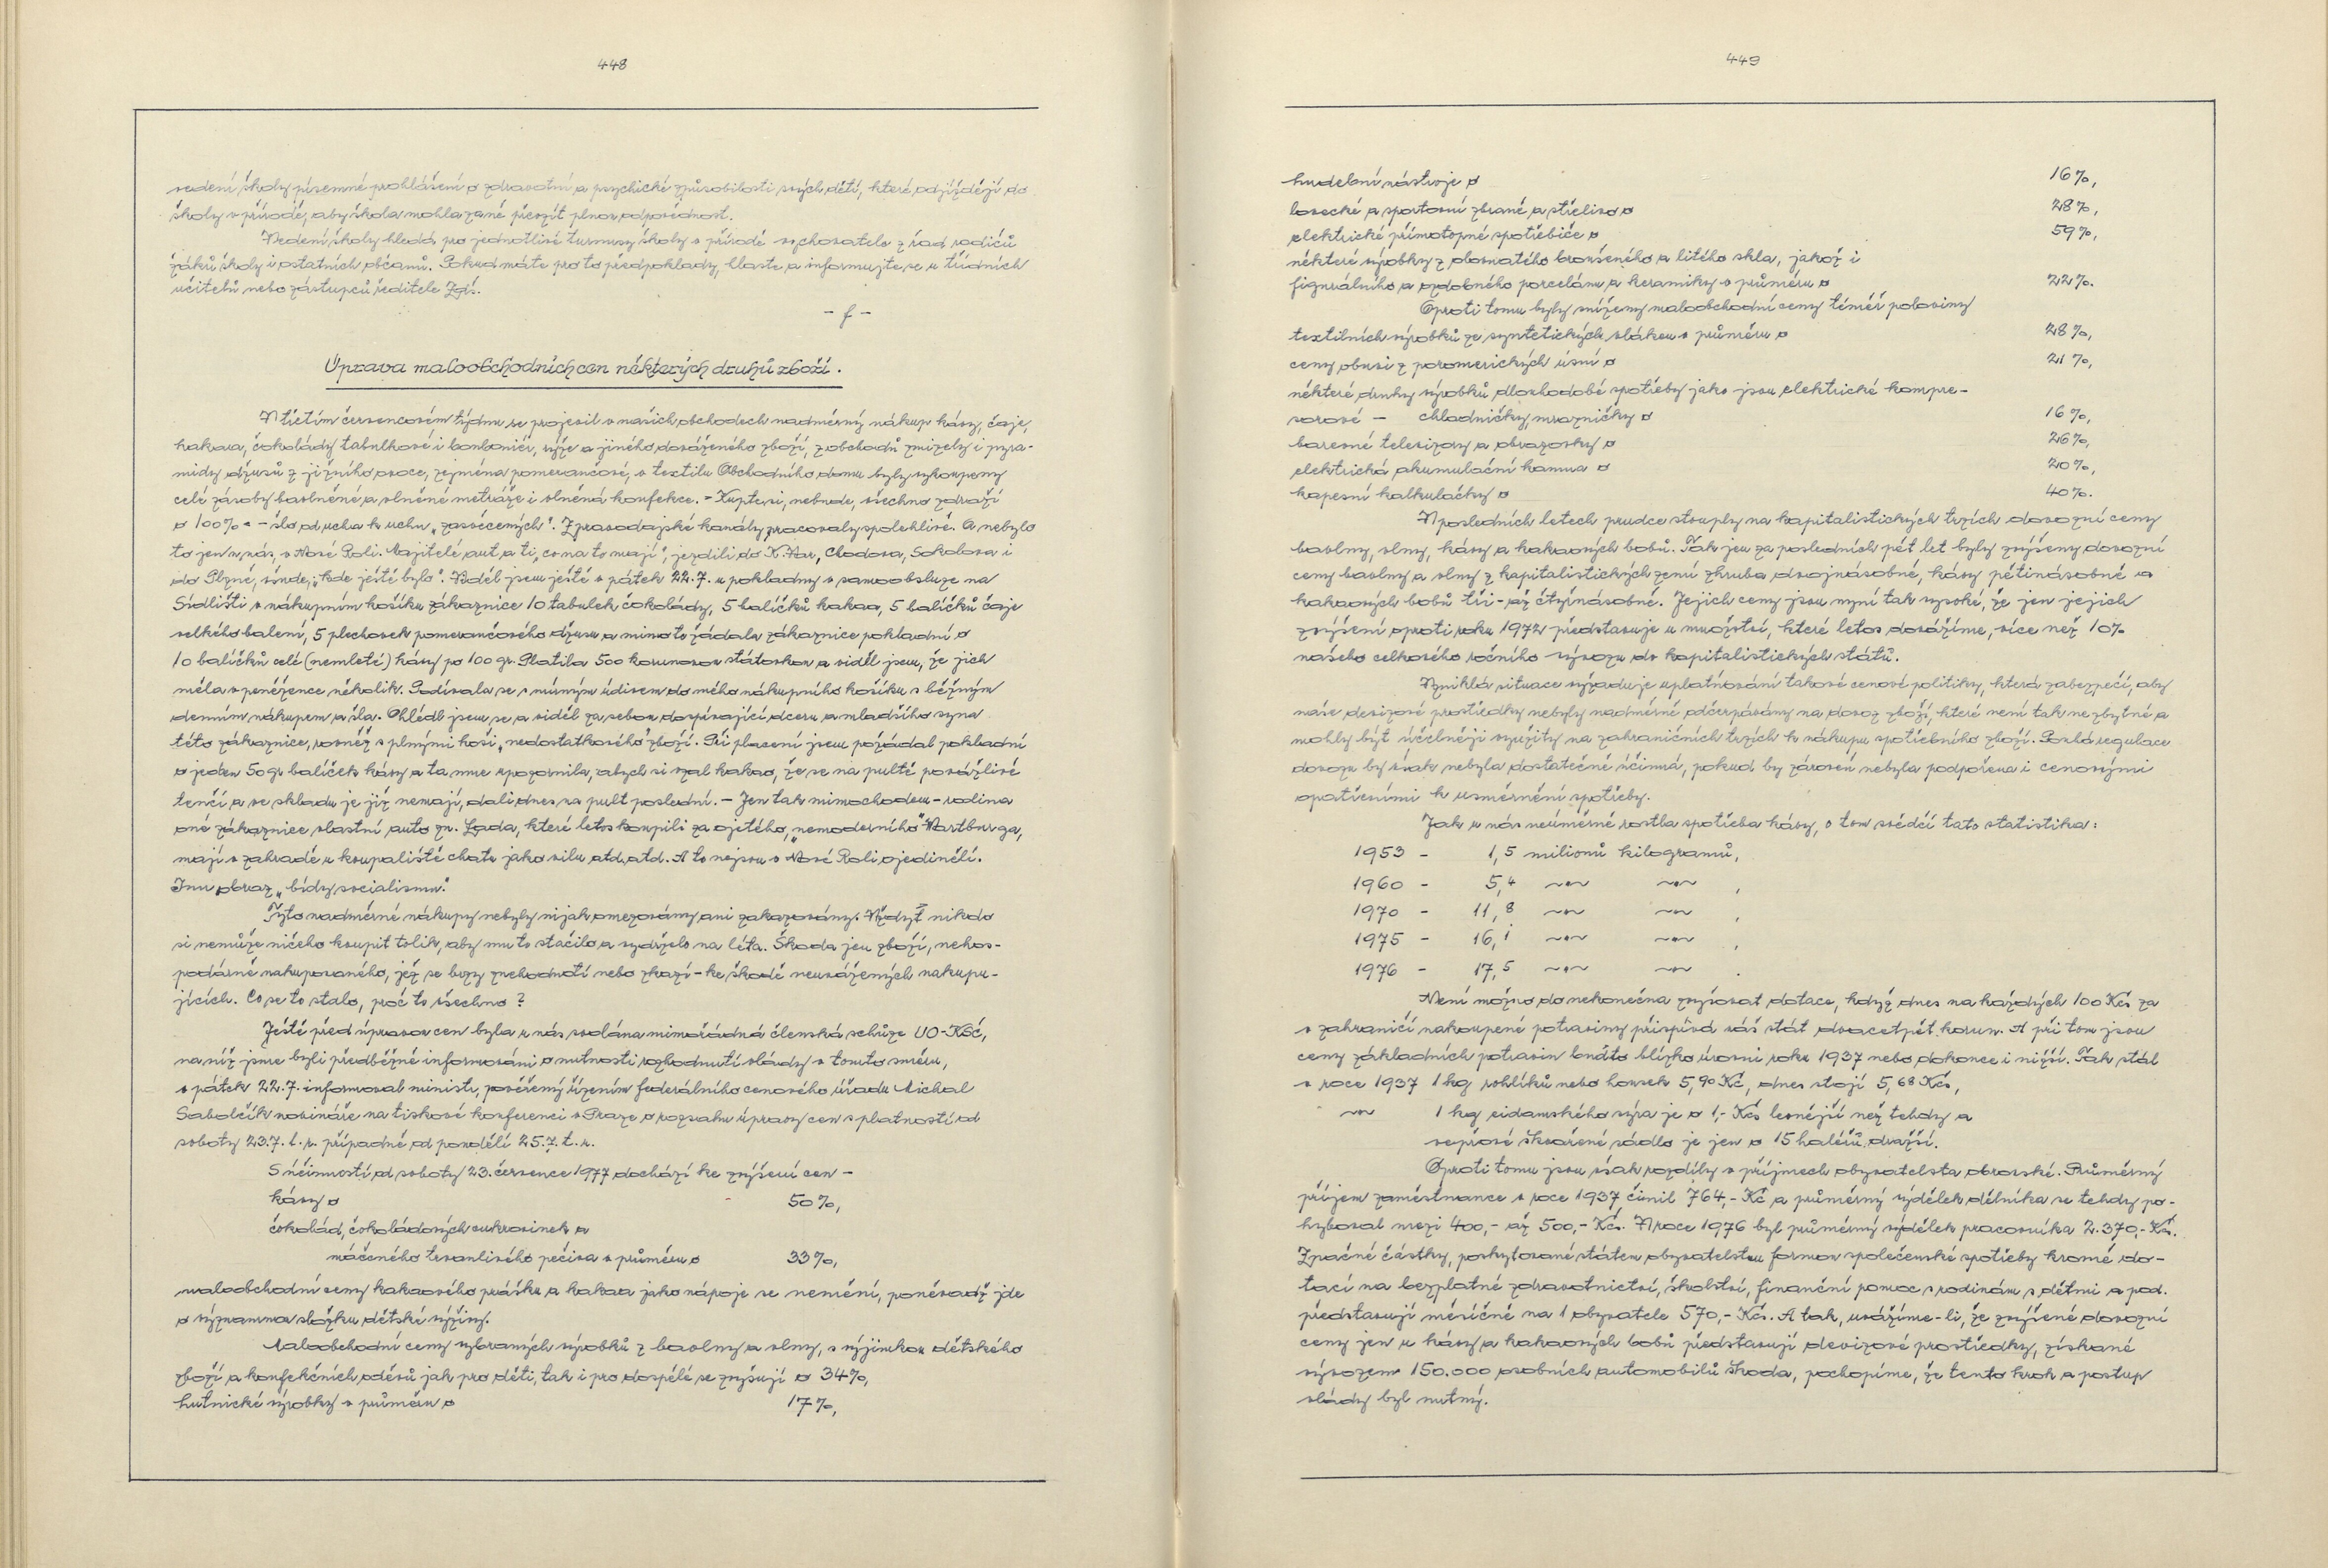 448
vedení školy písemné prohlášení o zdravotní a psychické způsobilosti svých dětí, které odjíždějí do
školy v přírodě, aby škola mohla za ně převzít plnou odpovědnost.
Vedení školy hledá pro jednotlivé turnusy školy v přírodě vychovatele z řad rodičů
žáků školy i ostatních občanů. Pokud máte pro to předpoklady, hlaste a informujte se u třídních
učitelů nebo zástupců ředitele Zdš.
- f -
Úprava maloobchodních cen některých druhů zboží.
V třetím červencovém týdnu se projevil v našich obchodech nadměrný nákup kávy, čaje,
kakaa, čokolády tabulkové i bonboniér, rýže a jiného dováženého zboží, z obchodů zmizely i pyra-
midy džusů z jižního ovoce, zejména pomerančové, v textilu Obchodního domu byly vykoupeny
celé zásoby bavlněné a vlněné metráže i vlněná konfekce. - Kupte si, nebude, všechno zdraží
o 100% - šlo od ucha k uchu „zasvěcených". Zpravodajské kanály pracovaly spolehlivě. A nebylo
to jen u nás, v Nové Roli. Majitelé aut a ti „co na to mají", jezdili do K.Var, Chodova, Sokolova i
do Plzně, všude, „kde ještě bylo". Viděl jsem ještě v pátek 22.7. u pokladny v samoobsluze na
Sídlišti v nákupním košíku zákaznice 10 tabulek čokolády, 5 balíčků kakaa, 5 balíčků čaje
velkého balení, 5 plechovek pomerančového džusu a mimo to žádala zákaznice pokladní o
10 balíčků celé (nemleté) kávy po 100 gr. Platila 500 korunovou státovkou a viděl jsem, že jich
měla v peněžence několik. Podívala se s mírným údivem do mého nákupního košíku s běžným
denním nákupem a šla. Ohlédl jsem se a viděl za sebou dospívající dceru a mladšího syna
této zákaznice, rovněž s plnými koši „nedostatkového" zboží. Při placení jsem požádal pokladní
o jeden 50 gr balíček kávy a ta mne upozornila, abych si vzal kakao, že se na pultě povážlivě
tenčí a ve skladu je již nemají, dali dnes na pult poslední. - Jen tak mimochodem - rodina
oné zákaznice vlastní auto zn. Lada, které letos koupili za ojetého, „nemoderního" Wartburga,
mají v zahradě u koupaliště chatu jako vilu atd. atd. A to nejsou v Nové Roli ojedinělí.
Inu obraz „bídy socialismu."
Tyto nadměrné nákupy nebyly nijak omezovány ani zakazovány. Vždyť nikdo
si nemůže ničeho koupit tolik, aby mu to stačilo a vydrželo na léta. Škoda jen zboží, nehos-
podárně nakupovaného, jež se brzy znehodnotí nebo zkazí - ke škodě neuvážených nakupu-
jících. Co se to stalo, proč to všechno?
Ještě před úpravou cen byla u nás svolána mimořádná členská schůze VO-KSČ,
na níž jsme byli předběžně informováni o nutnosti rozhodnutí vlády v tomto směru,
v pátek 22.7. informoval ministr, pověřený řízením federálního cenového úřadu Michal
Sabolčík novináře na tiskové konferenci v Praze o rozsahu úpravy cen s platností od
soboty 23.7. t.r. případně od pondělí 25.7. t.r.
S účinností od soboty 23. července 1977 dochází ke zvýšení cen -
kávy o 50%,
čokolád, čokoládových cukrovinek a
máčeného trvanlivého pečiva v průměru o 33%,
maloobchodní ceny kakaového prášku a kakaa jako nápoje se nemění, poněvadž jde
o významnou složku dětské výživy.
Maloobchodní ceny vybraných výrobků z bavlny a vlny, s výjimkou dětského
zboží a konfekčních oděvů jak pro děti, tak i pro dospělé se zvyšují o 34%,
hutnické výrobky v průměru o 17%,
449
hudební nástroje o 16%,
lovecké a sportovní zbraně a střelivo o 28%,
elektrické přímotopné spotřebiče o 59%,
některé výrobky z olovnatého broušeného a litého skla, jakož i
figurálního a ozdobného porcelánu a keramiky v průměru o 22%.
Oproti tomu byly sníženy maloobchodní ceny téměř poloviny
textilních výrobků ze syntetických vláken v průměru o 28%,
ceny obuvi z poromerických úsní o 21%,
některé druhy výrobků dlouhodobé spotřeby jako jsou elektrické kompre-
sorové - chladničky, mrazničky o 16%,
barevné televizory a obrazovky o 26%,
elektrická akumulační kamna o 20%,
kapesní kalkulačky o 40%.
V posledních letech prudce stouply na kapitalistických trzích dovozní ceny
bavlny, vlny, kávy a kakaových bobů. Tak jen za posledních pět let byly zvýšeny dovozní
ceny bavlny a vlny z kapitalistických zemí zhruba dvojnásobně, kávy pětinásobně a
kakaových bobů tří - až čtyřnásobně. Jejich ceny jsou nyní tak vysoké, že jen jejich
zvýšení oproti roku 1972 představuje u množství, které letos dovážíme, více než 10%
našeho celkového ročního vývozu do kapitalistických států.
Vzniklá situace vyžaduje uplatňování takové cenové politiky, která zabezpečí, aby
naše devizové prostředky nebyly nadměrně odčerpávány na dovoz zboží, které není tak nezbytné a
mohly být účelněji využity na zahraničních trzích k nákupu spotřebního zboží. Pouhá regulace
dovozu by však nebyla dostatečně účinná, pokud by zároveň nebyla podpořena i cenovými
opatřeními k usměrnění spotřeby.
Jak u nás neúměrně rostla spotřeba kávy, o tom svědčí tato statistika:
1953 - 1,5 milionů kilogramů,
1960 - 5,4 ~"~ ~"~ ,
1970 - 11,8 ~"~ ~"~ ,
1975 - 16,1 ~"~ ~"~ ,
1976 - 17,5 ~"~ ~"~ .
Není možno do nekonečna zvyšovat dotace, když dnes na každých 100 Kčs za
v zahraničí nakoupené potraviny přispívá náš stát dvacetpět korun. A při tom jsou
ceny základních potravin buďto blízko úrovni roku 1937 nebo dokonce i nižší. Tak stál
v roce 1937 1 kg rohlíků nebo housek 5,90 Kč, dnes stojí 5,68 Kčs,
~"~ 1 kg eidamského sýra je o 1,- Kčs levnější než tehdy a
vepřové škvařené sádlo je jen o 15 haléřů dražší.
Oproti tomu jsou však rozdíly v příjmech obyvatelsta obrovské. Průměrný
příjem zaměstnance v roce 1937 činil 764,- Kč a průměrný výdělek dělníka se tehdy po-
hyboval mezi 400,- až 500,- Kčs. V roce 1976 byl průměrný výdělek pracovníka 2.370,- Kčs.
Značné částky, poskytované státem obyvatelstvu formou společenské spotřeby kromě do-
tací na bezplatné zdravotnictví, školství, finanční pomoc rodinám s dětmi a pod.
představují měsíčně na 1 obyvatele 570,- Kčs. A tak, uvážíme-li, že zvýšené dovozní
ceny jen u kávy a kakaových bobů představují devizové prostředky, získané
vývozem 150.000 osobních automobilů Škoda, pochopíme, že tento krok a postup
vlády byl nutný.